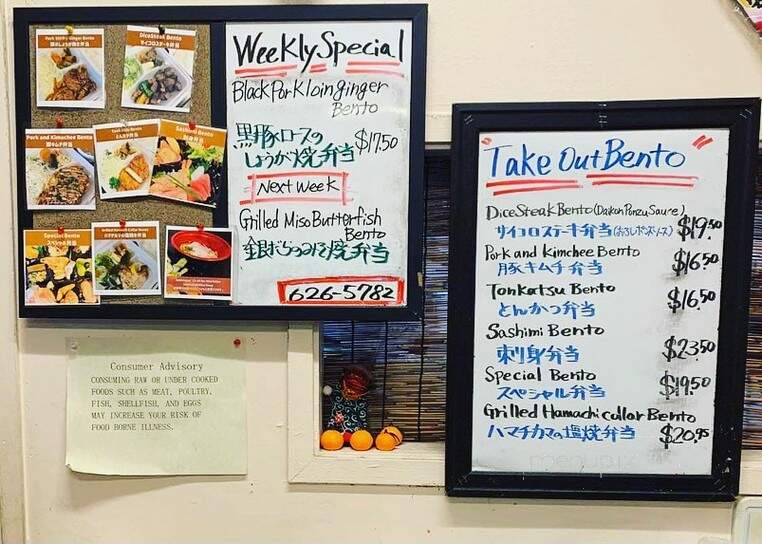 Weekly Special
Black Pork loin ginger
Bento
黒豚ロースの
しょうが焼弁当
$17.50
Next Week
Grilled Miso Butterfish
Bento
銀だらのみそ焼弁当
626-5782
DiceSteak Bento
サイコロステーキ弁当
Pork and Kimchee Bento
豚キムチ弁当
とんかつ弁当
Special Bento
スペシャル弁当
Consumer Advisory
CONSUMING RAW OR UNDER COOKED
FOODS SUCH AS MEAT, POULTRY,
FISH, SHELLFISH, AND EGGS
MAY INCREASE YOUR RISK OF
FOOD BORNE ILLNESS.
Take Out Bento
Dice Steak Bento (Daikon Ponzu Sauce)
サイコロステーキ弁当(おろしポン酢ソース) $19.50
Pork and Kimchee Bento
豚キムチ弁当 $16.50
Tonkatsu Bento
とんかつ弁当 $16.50
Sashimi Bento
刺身弁当 $23.50
Special Bento
スペシャル弁当 $19.50
Grilled Hamachi collar Bento
ハマチカマの塩焼弁当 $20.95